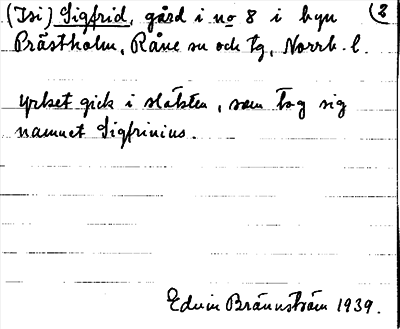 (Isi) Sigfrid, gård i no 8 i byn (2
Prästholm, Råne sn och tg, Norrb. l.
yrket gick i släkten, som tog sig
namnet Sigfrinius.
Edvin Brännström 1939.